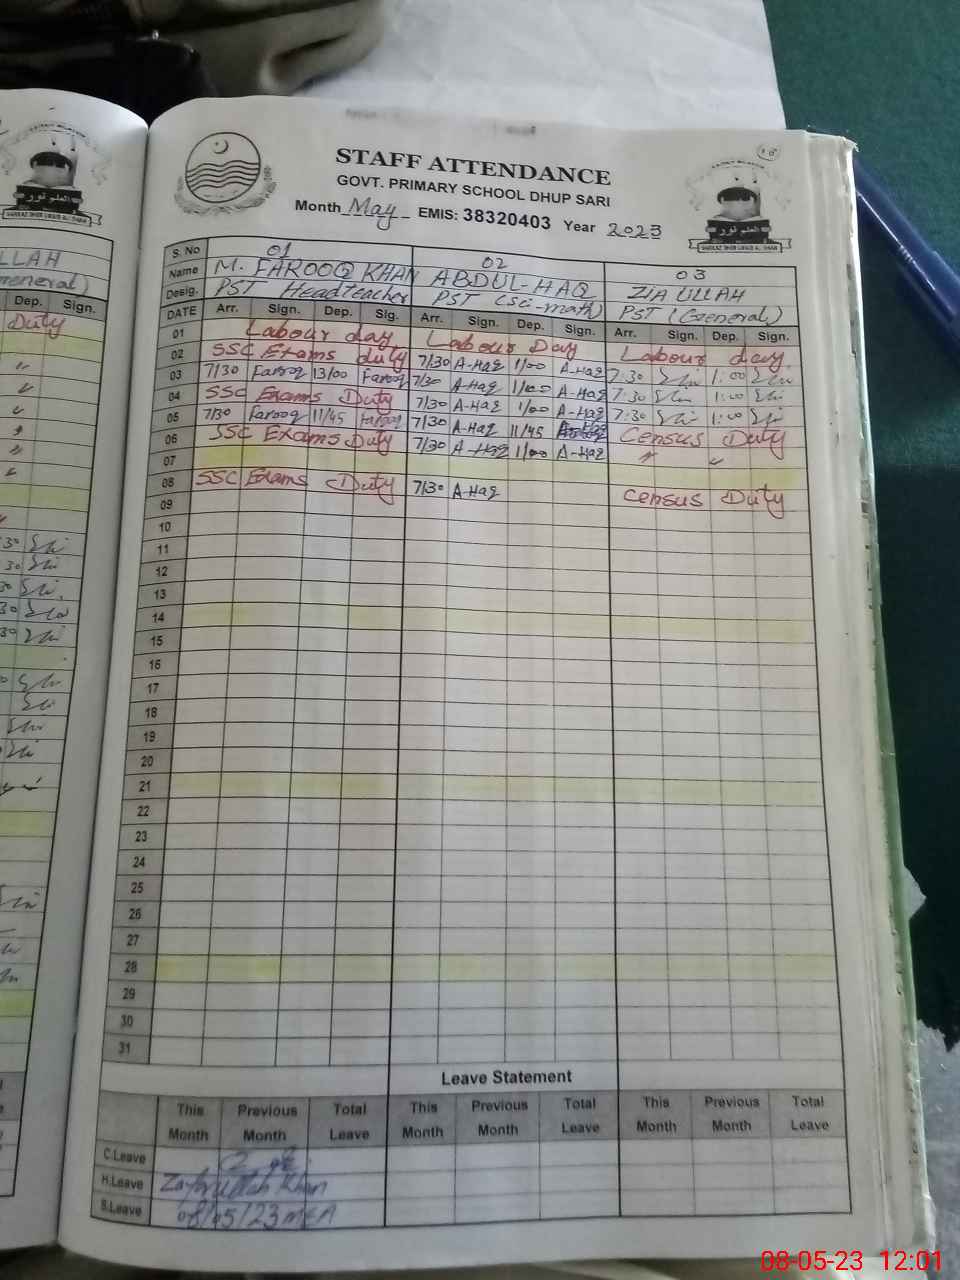 STAFF ATTENDANCE
GOVT. PRIMARY SCHOOL DHUP SARI
Month May EMIS: 38320403 Year 2023
العلم نور
S. No 01 02 03
Name M. FAROOQ KHAN ABDUL-HAQ ZIA ULLAH
Desig. PST Headteacher PST (Sci-math) PST (General)
DATE Arr. Sign. Dep. Sig. Arr. Sign. Dep. Sign. Arr. Sign. Dep. Sign.
01 Labour day Labour Day Labour day
02 SSC Exams duty 7/30 A-Haq 1/00 A-Haq 7:30 1:00
03 7/30 Farooq 13/00 Farooq 7/30 A-Haq 1/00 A-Haq 7:30 1:00
04 SSC Exams Duty 7/30 A-Haq 1/00 A-Haq 7:30 1:00
05 7/30 Farooq 11/45 Farooq 7/30 A-Haq 11/45 Census Duty
06 SSC Exams Duty 7/30 A-Haq 1/00 A-Haq " "
07
08 SSC Exams Duty 7/30 A-Haq Census Duty
09
10
11
12
13
14
15
16
17
18
19
20
21
22
23
24
25
26
27
28
29
30
31
Leave Statement
This Month Previous Month Total Leave This Month Previous Month Total Leave This Month Previous Month Total Leave
C.Leave
H.Leave Zafarullah Khan
S.Leave 08/05/23 MEA
LLAH
General)
Dep. Sign.
Duty
08-05-23 12:01